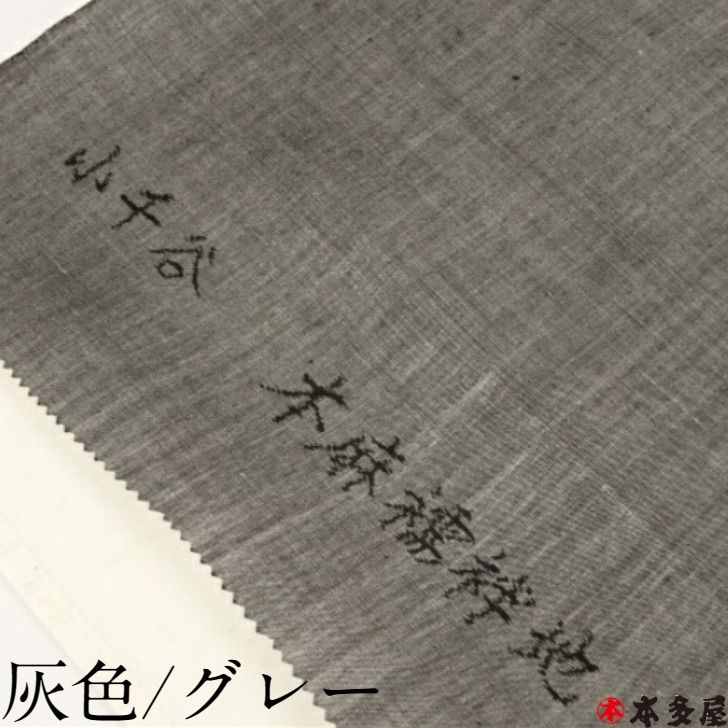 小千谷
本麻襦袢地
灰色/グレー
本 本多屋